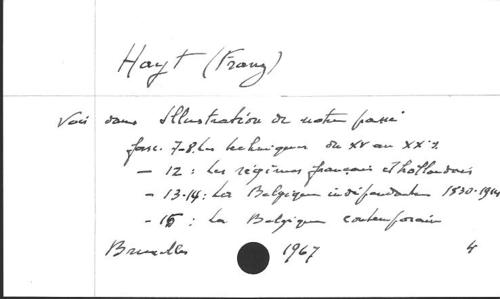 Hayt (Franz)
Voir dans Illustration de notre passé
fasc. 7-8. Les techniques du XV au XXe s.
— 12 : Les régimes français et hollandais
— 13-14 : La Belgique indépendante 1830-1914
— 15 : La Belgique contemporaine
Bruxelles 1967 4